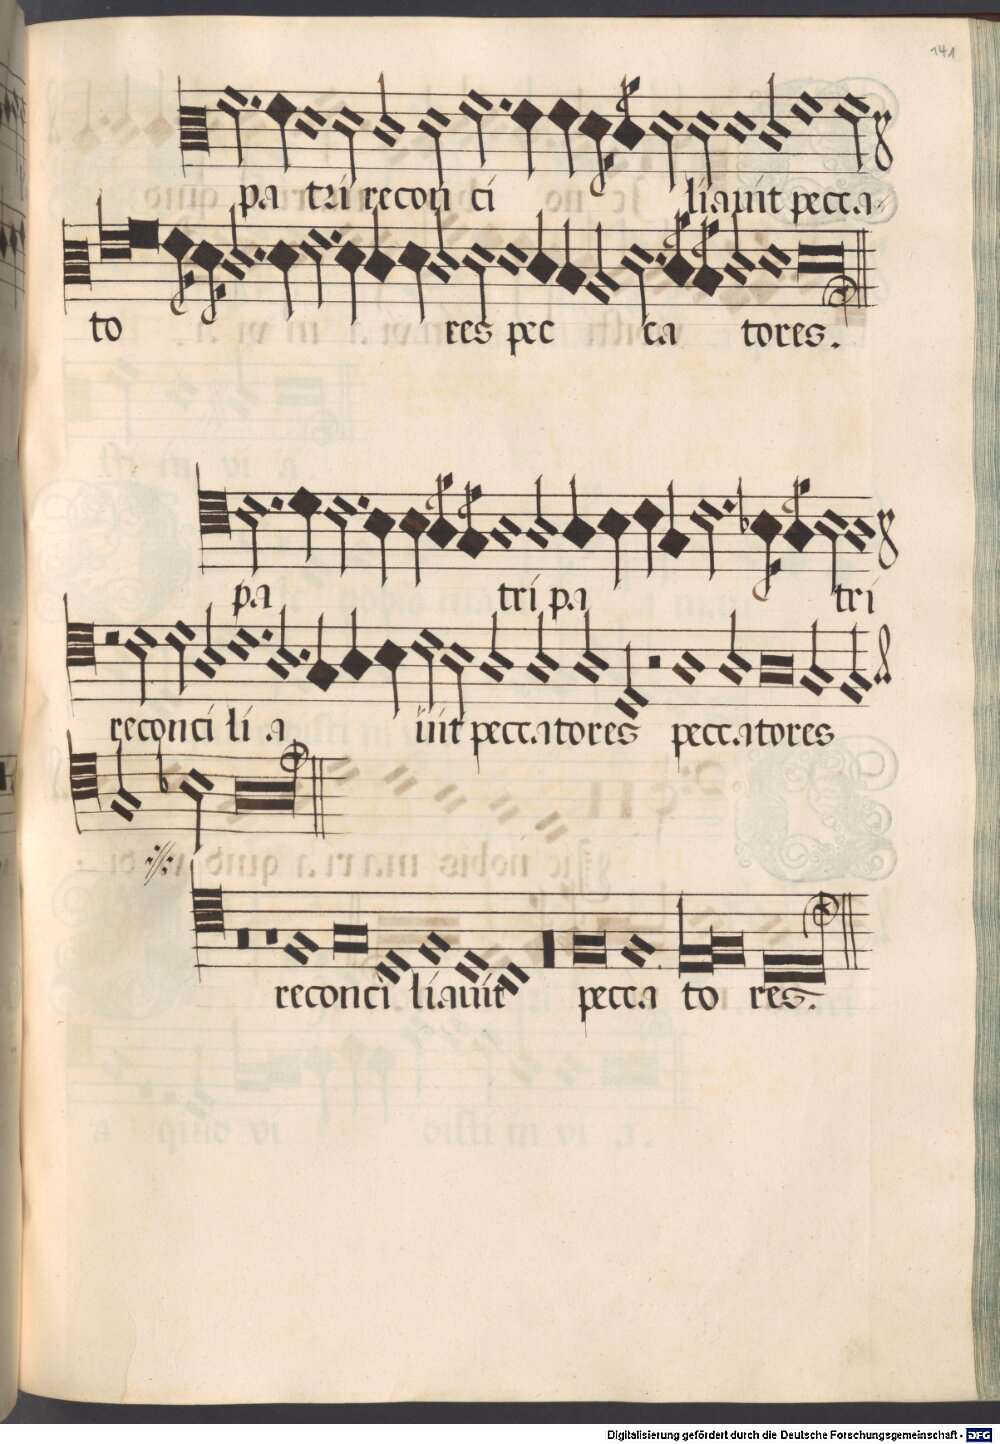 141
pa tri recon ci liauit pecca-
to res pec ca tores.
pa tri pa tri
reconci li a uit peccatores peccatores
reconci liauit pecca to res.
Digitalisierung gefördert durch die Deutsche Forschungsgemeinschaft - DFG